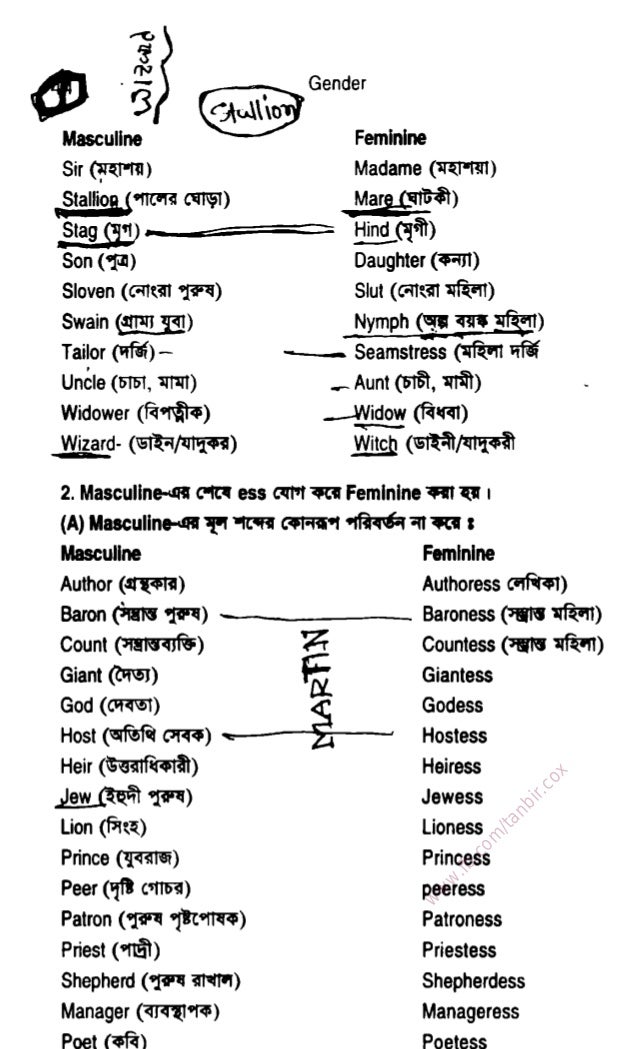 Wizard
Stallion
Gender
Masculine Feminine
Sir (মহাশয়) Madame (মহাশয়া)
Stallion (পালের ঘোড়া) Mare (ঘাটকী)
Stag (মৃগ) Hind (মৃগী)
Son (পুত্র) Daughter (কন্যা)
Sloven (নোংরা পুরুষ) Slut (নোংরা মহিলা)
Swain (গ্রাম্য যুবা) Nymph (অল্প বয়স্ক মহিলা)
Tailor (দর্জি) Seamstress (মহিলা দর্জি
Uncle (চাচা, মামা) Aunt (চাচী, মামী)
Widower (বিপত্নীক) Widow (বিধবা)
Wizard- (ডাইন/যাদুকর) Witch (ডাইনী/যাদুকরী
2. Masculine-এর শেষে ess যোগ করে Feminine করা হয়।
(A) Masculine-এর মূল শব্দের কোনরূপ পরিবর্তন না করে ঃ
Masculine Feminine
Author (গ্রন্থকার) Authoress লেখিকা)
Baron (সম্ভ্রান্ত পুরুষ) Baroness (সম্ভ্রান্ত মহিলা)
Count (সম্ভ্রান্তব্যক্তি) Countess (সম্ভ্রান্ত মহিলা)
Giant (দৈত্য) Giantess
God (দেবতা) Godess
Host (অতিথি সেবক) Hostess
Heir (উত্তরাধিকারী) Heiress
Jew (ইহুদী পুরুষ) Jewess
Lion (সিংহ) Lioness
Prince (যুবরাজ) Princess
Peer (দৃষ্টি গোচর) peeress
Patron (পুরুষ পৃষ্টপোষক) Patroness
Priest (পাদ্রী) Priestess
Shepherd (পুরুষ রাখাল) Shepherdess
Manager (ব্যবস্থাপক) Manageress
Poet (কবি) Poetess
MARTIN